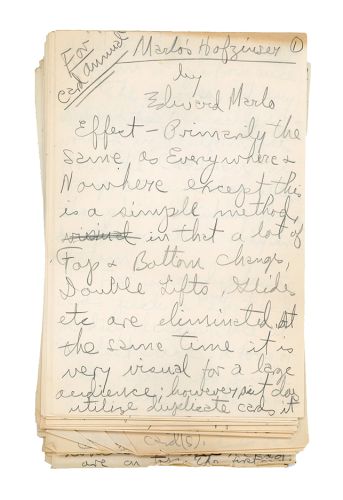 For
card annual
Marlo's Hofzinser 1
by
Edward Marlo
Effect - Primarily the
same as Everywhere &
Nowhere except this
is a simple method,
visual in that a lot of
Top & Bottom Changes,
Double Lifts, Glides
etc are eliminated. At
the same time it is
very visual for a large
audience; however, it does
utilize duplicate cards it
card(s).
are on